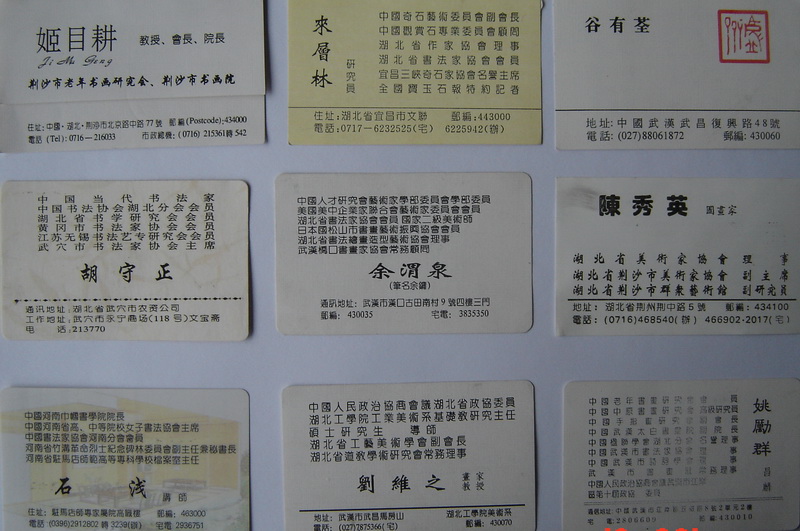 姬目耕
教授、會長、院長
Ji Mu Geng
荆沙市老年书画研究会、荆沙市书画院
住址:中國·湖北·荆沙市北京路中路77號 郵編(Postcode):434000
電話(Tel):0716—216033 市政總機:(0716) 215361轉542
來層林
研究員
中國奇石藝術委員會副會長
中國觀賞石專業委員會顧問
湖北省作家協會理事
湖北省書法家協會會員
宜昌三峽奇石家協會名譽主席
全國寶玉石報特約記者
住址:湖北省宜昌市文聯 郵編:443000
電話:0717—6232525(宅) 6225942(辦)
谷有荃
地址:中國武漢武昌復興路48號
電話:(027)88061872 郵編:430060
中国当代书法家
中国书法协会湖北分会会员
湖北省书学研究会会员
黄冈市书法家协会会员
江苏无锡书法艺专研究会会员
武穴市书法家协会主席
胡守正
通讯地址:湖北省武穴市农资公司
工作地址:武穴市永宁商场(118号)文宝斋
电话:213770
中國人才研究會藝術家學部委員會學部委員
美國美中企業家聯合會藝術家委員會會員
湖北省書法家協會會員 國家二級美術師
日本國松山市書畫藝術振興協會會員
湖北省書法繪畫造型藝術協會理事
武漢橋口書畫家協會常務顧問
余渭泉
(筆名余鏞)
通訊地址:武漢市漢口古田南村9號四樓三門
郵編:430035 宅電:3835350
陳秀英 國畫家
湖北省美術家協會 理事
湖北省荆沙市美術家協會 副主席
湖北省荆沙市群衆藝術館 副研究員
地址:湖北省荆州荆中路5號 郵編:434100
電話:(0716)468540(辦) 466902-2017(宅)
中國河南巾幗書學院院長
中國河南省高、中等院校女子書法協會主席
中國書法家協會河南分會會員
河南省竹溝革命烈士紀念碑林委員會副主任兼秘書長
河南省駐馬店師範高等專科學校檔案室主任
石浅 講師
住址:駐馬店師專家屬院高職樓 郵編:463000
電話:(0396)2912802轉3239(辦) 宅電:2936751
中國人民政治協商會議湖北省政協委員
湖北工學院工業美術系基礎教研究主任
碩士研究生導師
湖北省工藝美術學會副會長
湖北省道教學術研究會常務理事
劉維之 畫家
教授
地址:武漢市武昌馬房山 湖北工學院美術系
電話:(027)7875366(宅) 郵編:430070
姚勵群
中國老年書畫研究會會員